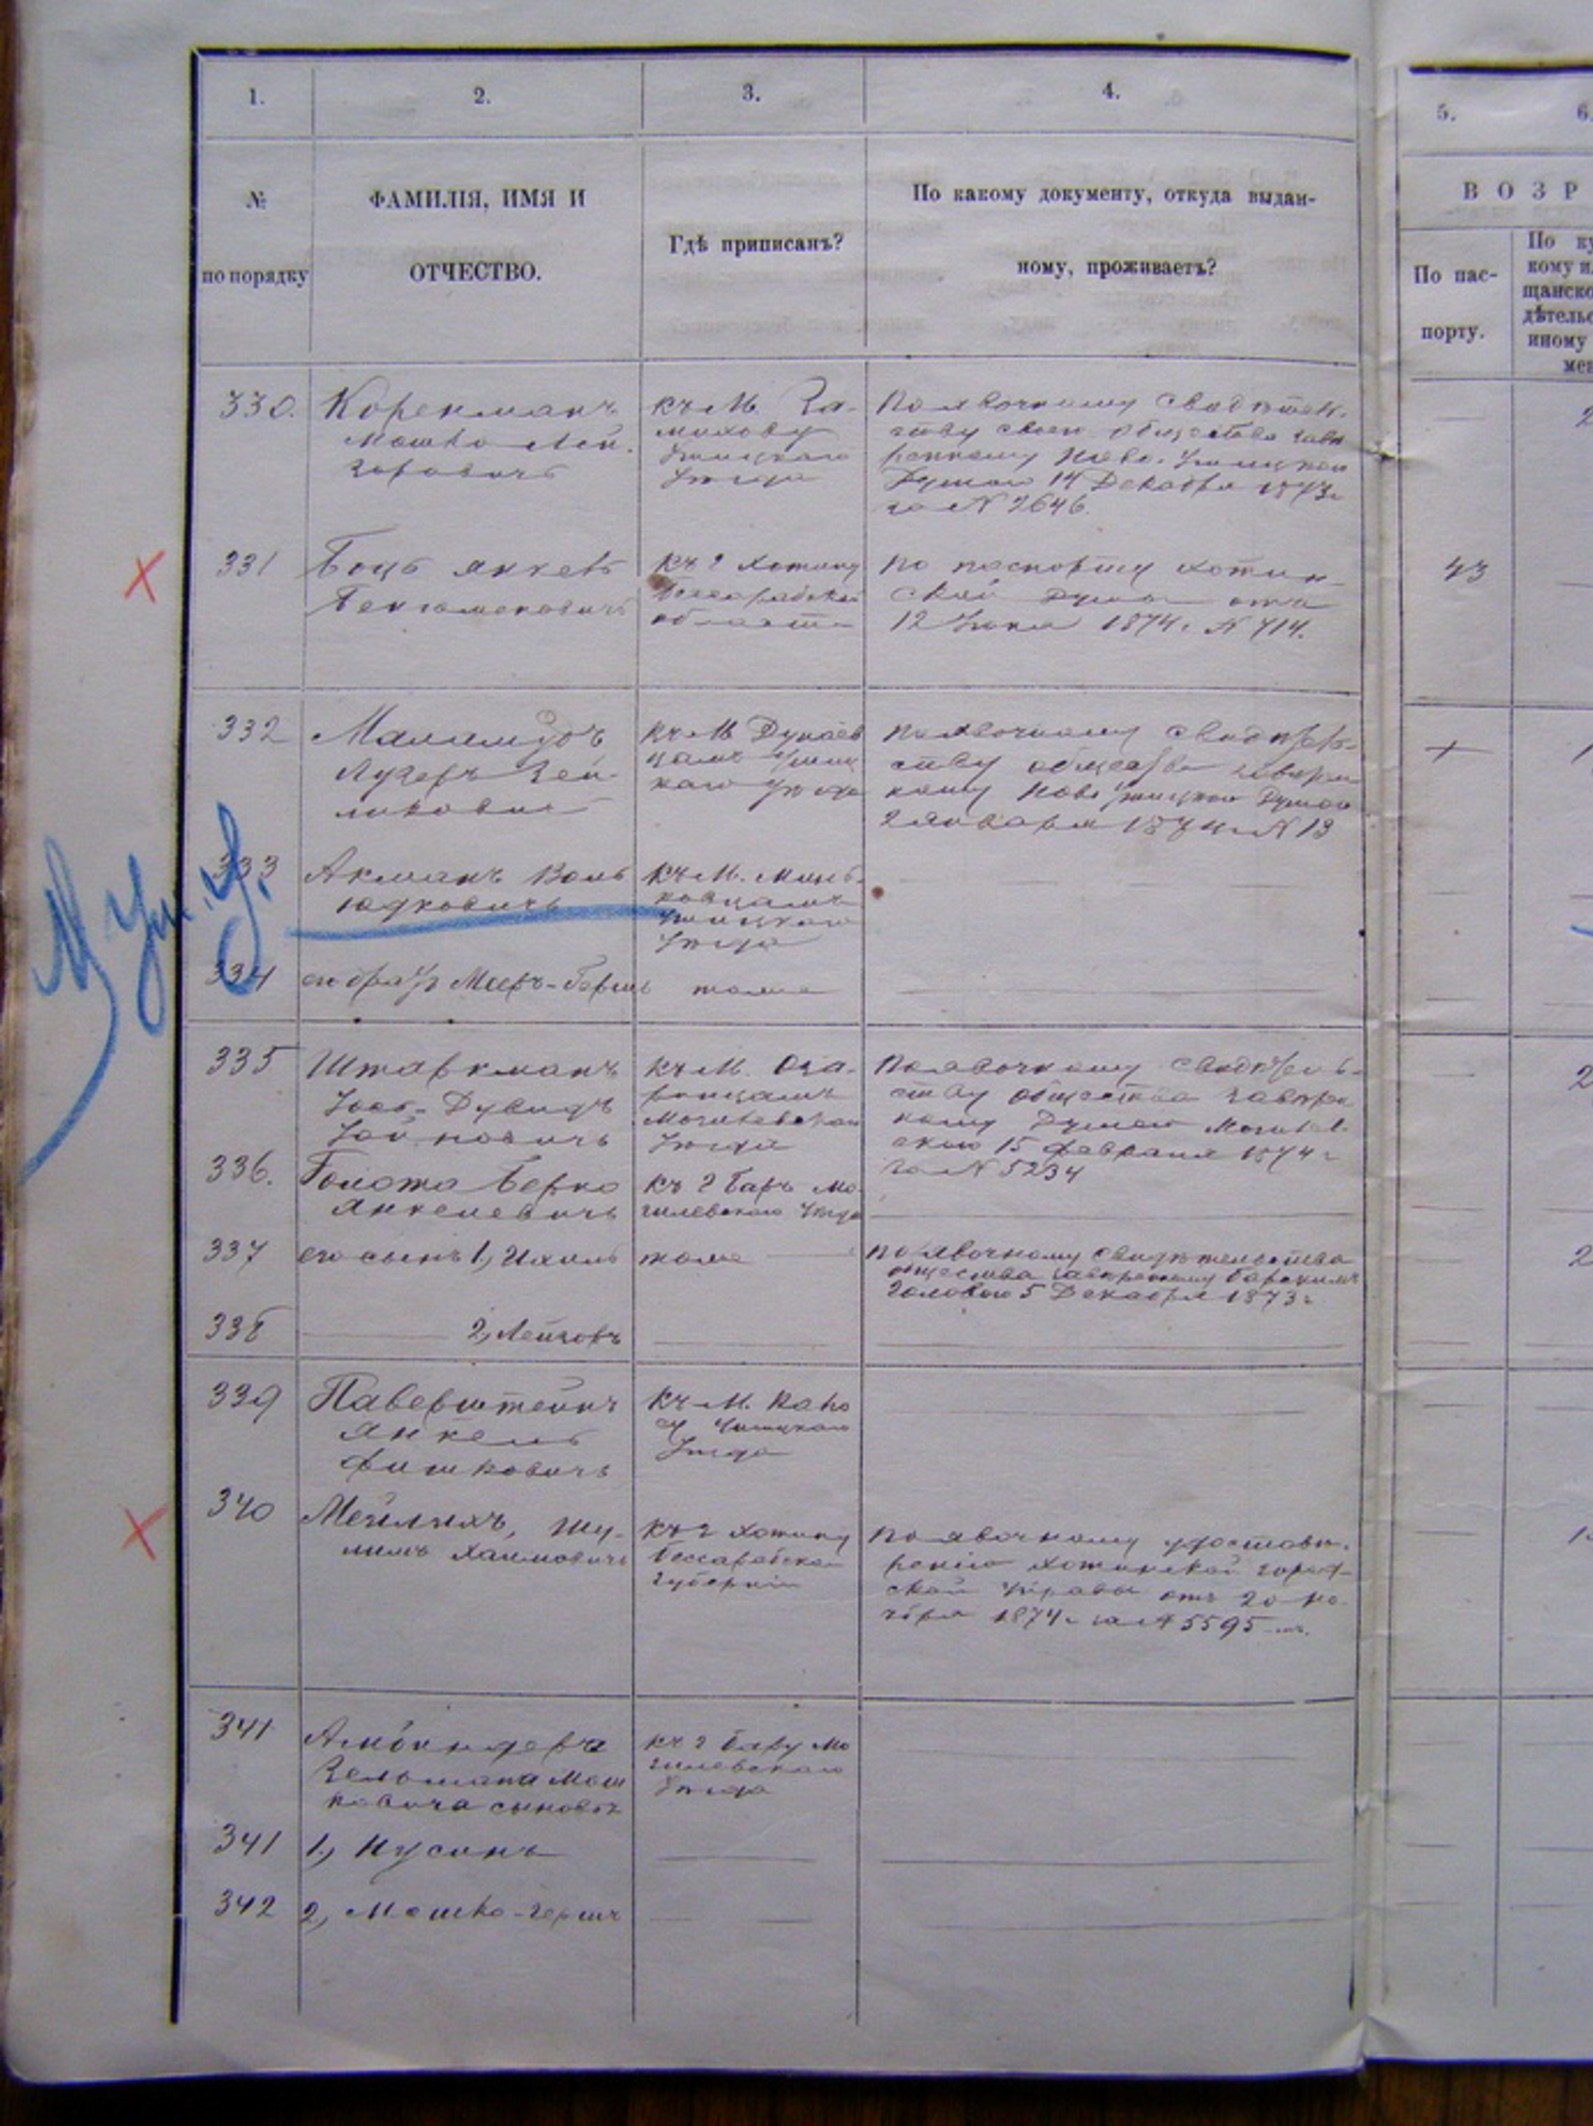 1.
2.
3.
4.
5.
6.
№
по порядку
ФАМИЛІЯ, ИМЯ И
ОТЧЕСТВО.
Гдѣ приписанъ?
По какому документу, откуда выдан-
ному, проживаетъ?
ВОЗР
По пас-
порту.
По ку
кому и
щанско
дѣтельс
иному
мен
330.
Коренманъ
Мошко Лей-
зоровичъ
къ М. За-
михову
Ушицкаго
Уѣзда
По явочному свидѣтель-
ству своего общества завѣ
ренному Ново-Ушицкою
Думою 14 Декабря 1873 г
за № 2646.
331
Боцъ Янкель
къ г Хотину
Бессарабской
области
по паспорту Хотин
ской Думы отъ
12 1874 г. № 714.
43
332
Маламудъ
Лузеръ Зей-
ликовичъ
къ М Дунаев
цамъ Ушиц
каго Уѣзда
по явочному свидѣтель-
ству общества завѣрен
ному Ново Ушицкою Думою
2 Января 1874 г № 13
333
Акманъ Воль
Юдковичъ
къ М. Минь-
ковцамъ
Ушицкаго
Уѣзда
334
его братъ Мееръ-Бершъ
тоже
М Уш. У.
335
Штаркманъ
Іось-Дувидъ
къ М. Оза-
ринцамъ
Могилевскаго
Уѣзда
По явочному свидѣтель-
ству общества завѣрен
ному Думою Могилев-
скою 15 Февраля 1874 г
за № 5234
336.
Голота Берко
Янкелевичъ
къ г Баръ Мо
гилевскаго Уѣзда
337
его сынъ 1, Ихиль
тоже
по явочному свидѣтельства
общества завѣренному Барскимъ
Головою 5 Декабря 1873 г
338
2, Лейзоръ
339
ПавеРштейнъ
Янкель
Фишковичъ
къ М.
Ушицкаго
Уѣзда
340
Мейлихъ, Шу-
лимъ Хаимовичъ
къ г Хотину
Бессарабской
губерніи
По явочному удостовѣ-
ренію Хотинской город-
ской Управы отъ 20 но-
ября 1874 г за № 5595
341
Зельмана Мош
ковича сыновья
къ г Бару Мо
гилевскаго
Уѣзда
341
1, Нусинъ
342
2, Мошко-Гершъ